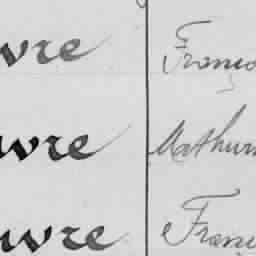 vre Franço
uvre Mathur
uvre Franç